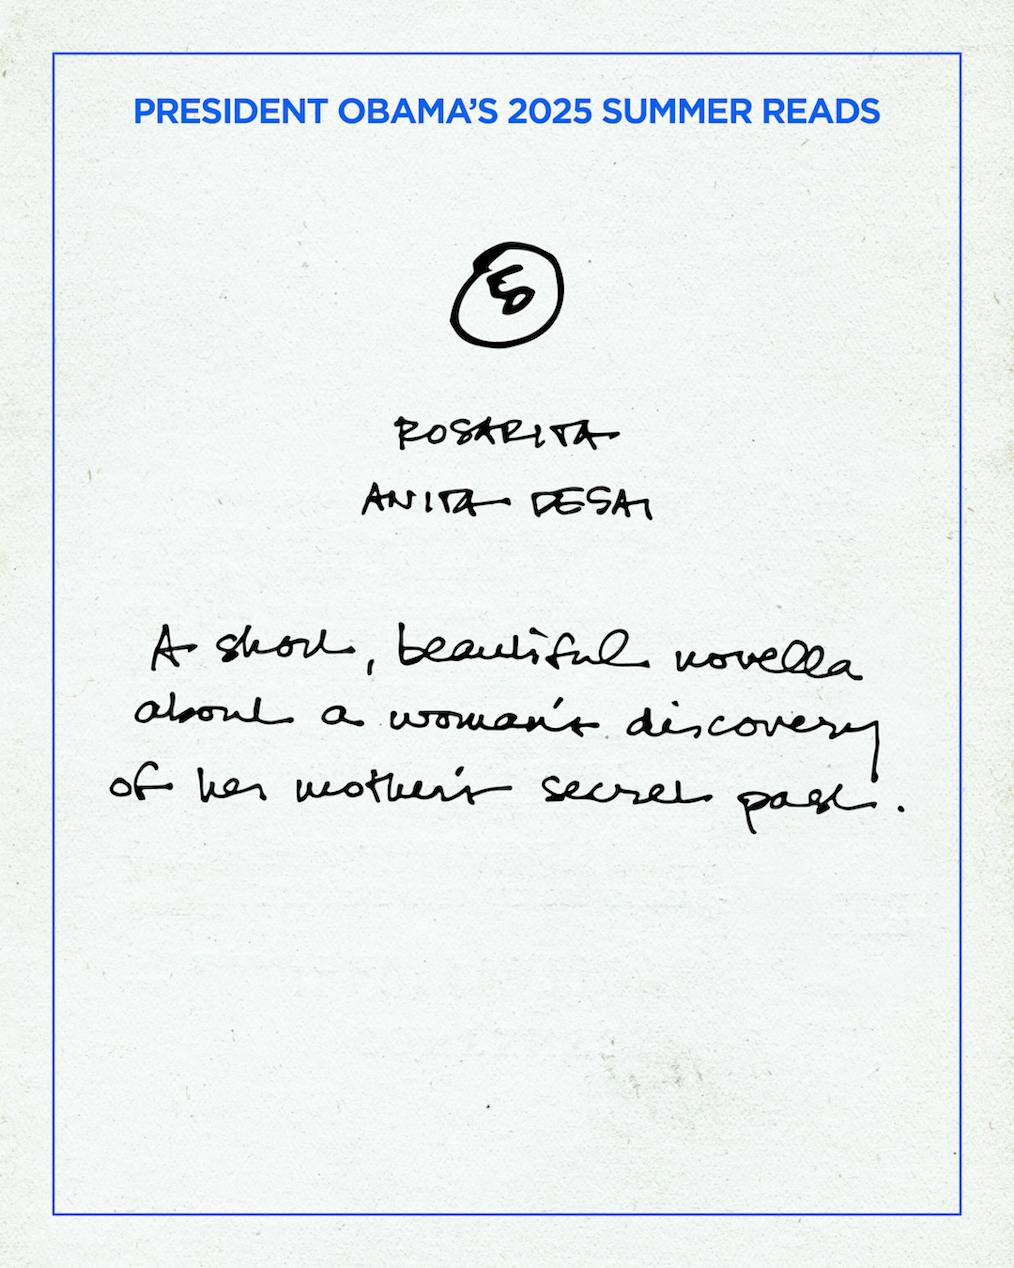 PRESIDENT OBAMA'S 2025 SUMMER READS
ROSARITA
ANITA DESAI
A short, beautiful novella
about a woman's discovery
of her mother's secret past.